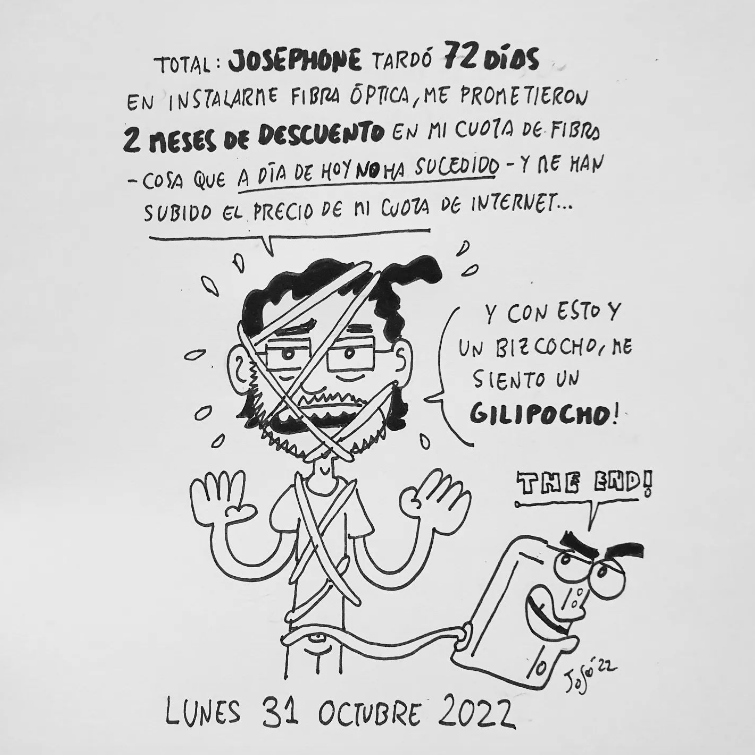 TOTAL: JOSEPHONE TARDÓ 72 DÍAS
EN INSTALARME FIBRA ÓPTICA, ME PROMETIERON
2 MESES DE DESCUENTO EN MI CUOTA DE FIBRA
- COSA QUE A DÍA DE HOY NO HA SUCEDIDO - Y ME HAN
SUBIDO EL PRECIO DE MI CUOTA DE INTERNET...
Y CON ESTO Y
UN BIZCOCHO, ME
SIENTO UN
GILIPOCHO!
THE END!
JOSÓ'22
LUNES 31 OCTUBRE 2022